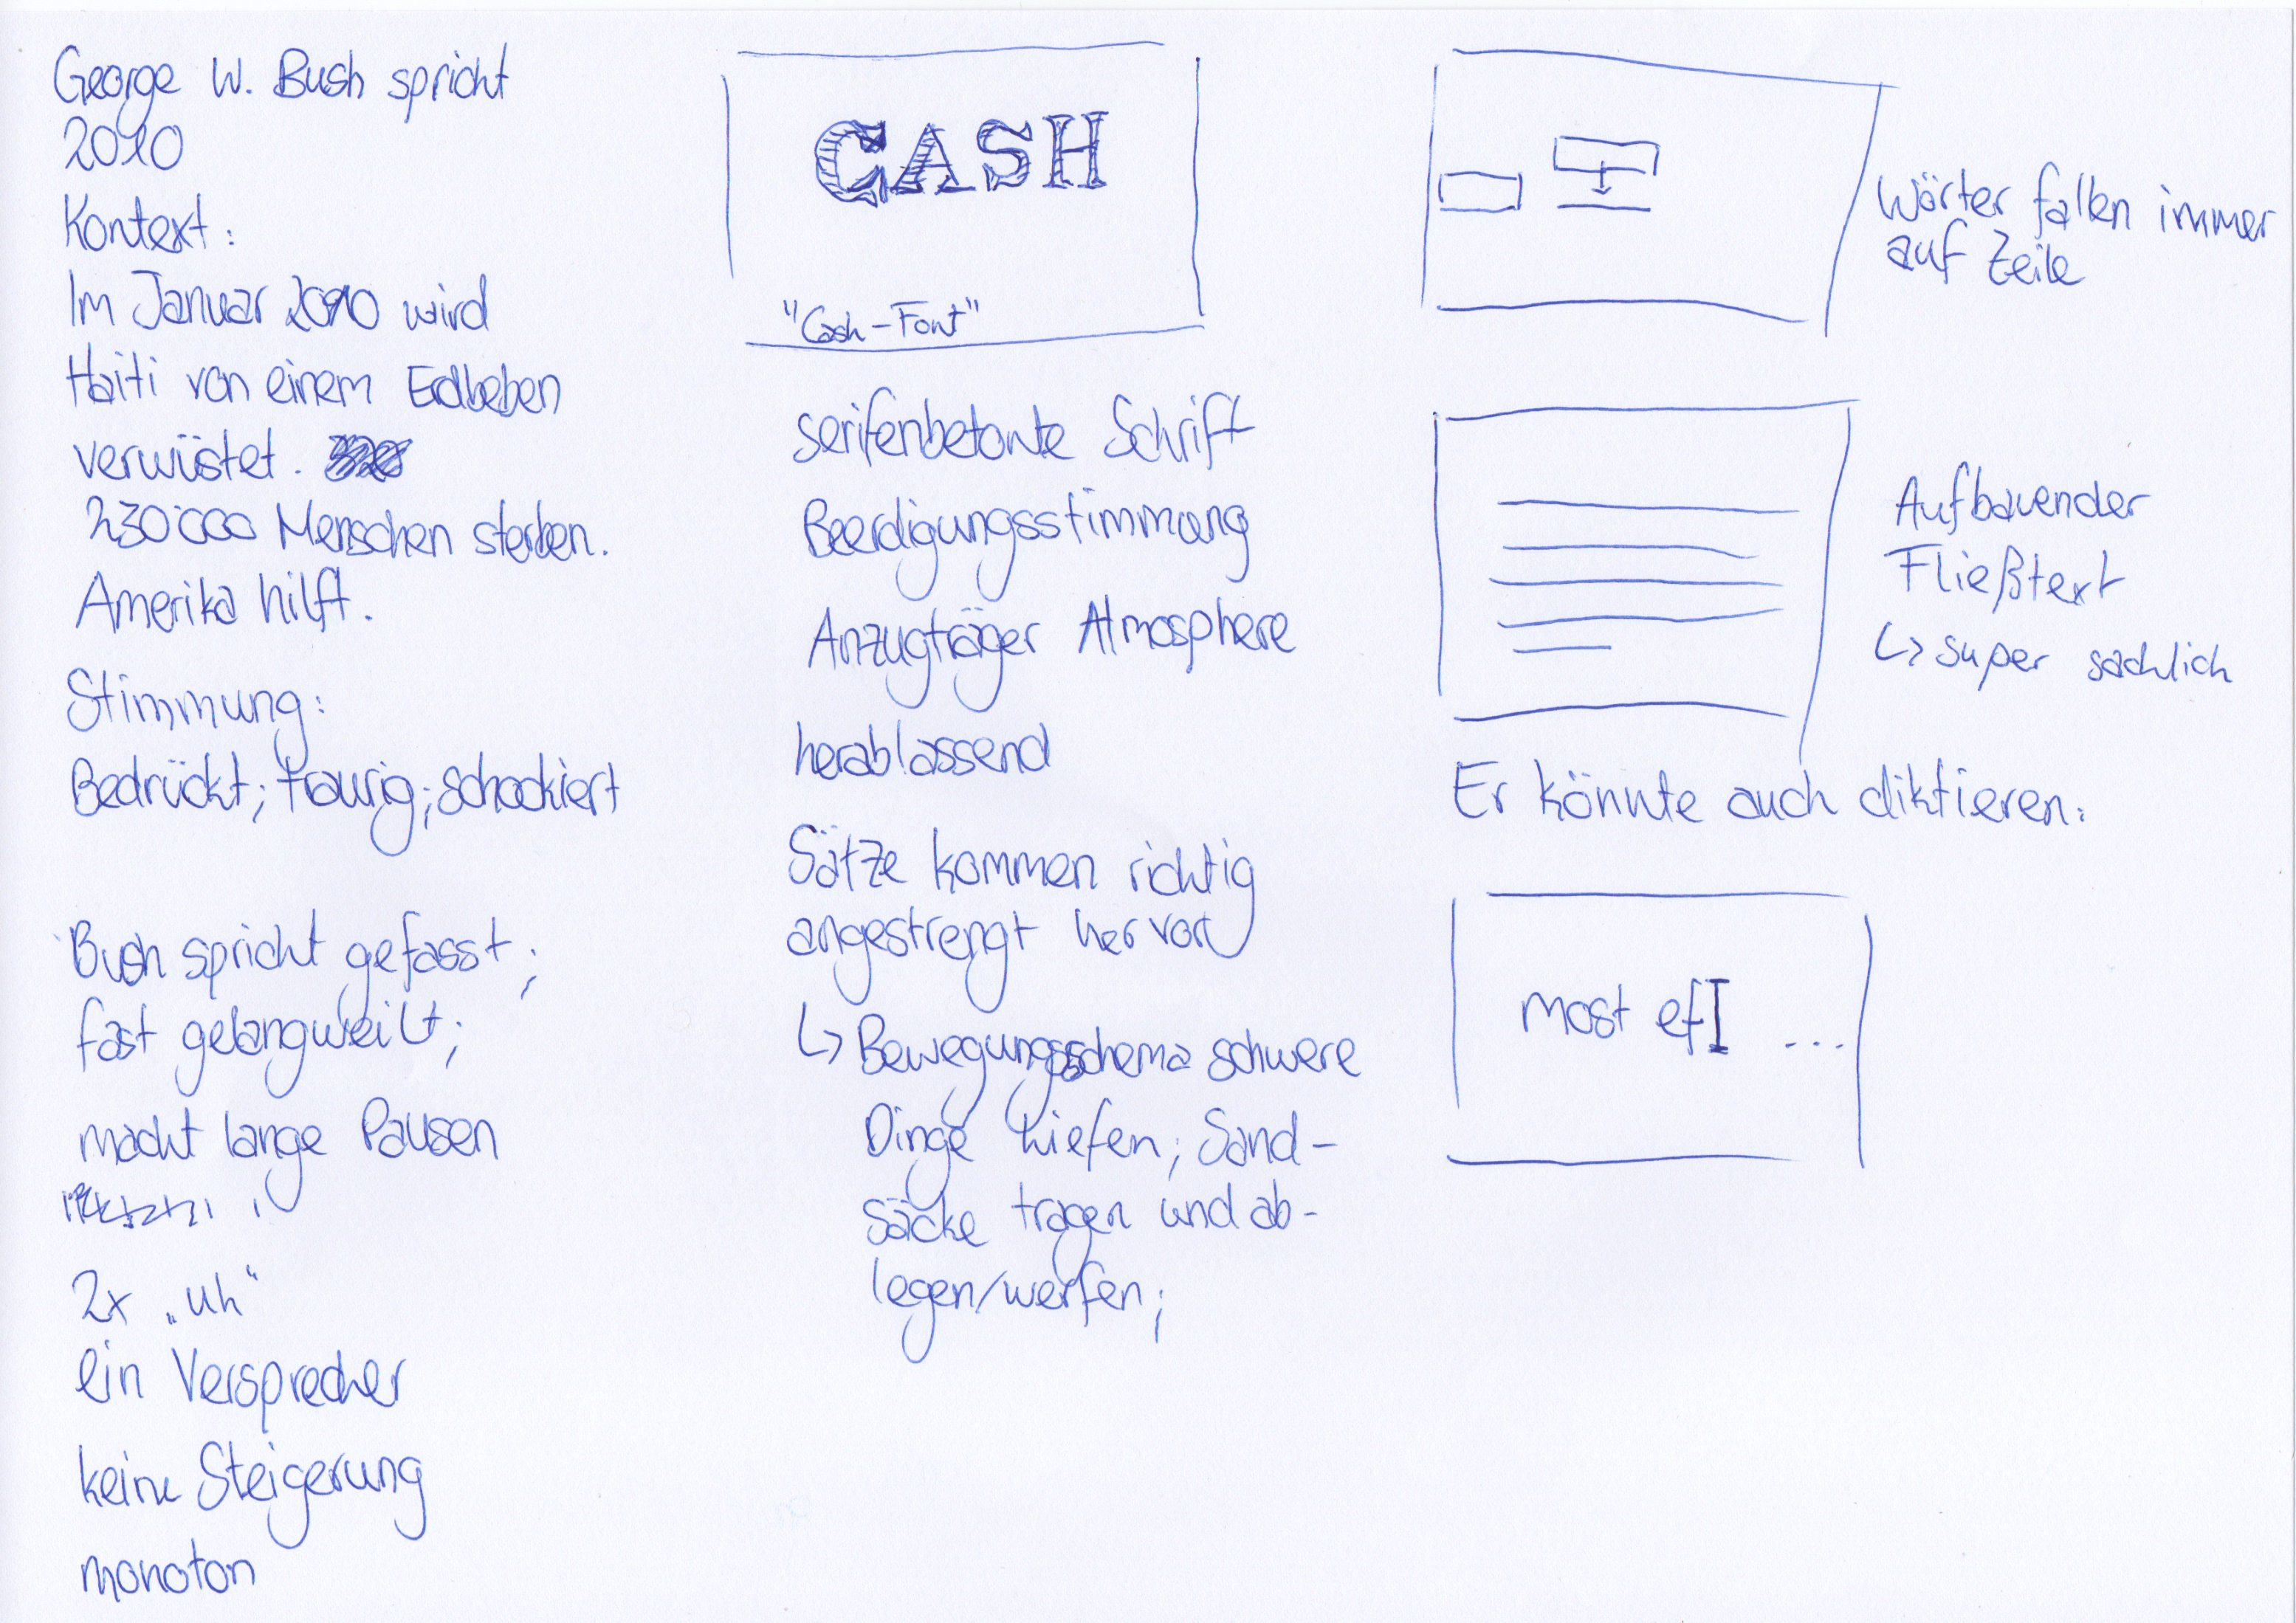 George W. Bush spricht
2010
Kontext:
Im Januar 2010 wird
Haiti von einem Erdbeben
verwüstet.
230'000 Menschen sterben.
Amerika hilft.
Stimmung:
Bedrückt; traurig; schockiert
Bush spricht gefasst;
fast gelangweilt;
macht lange Pausen
2x „uh“
ein Versprecher
keine Steigerung
monoton
CASH
"Cash-Font"
serifenbetonte Schrift
Beerdigungsstimmung
Anzugträger Atmosphere
herablassend
Sätze kommen richtig
angestrengt hervor
↳ Bewegungsschema schwere
Dinge hiefen; Sand-
säcke tragen und ab-
legen/werfen;
Wörter fallen immer
auf Zeile
Aufbauender
Fließtext
↳ super sachlich
Er könnte auch diktieren:
most ef ...